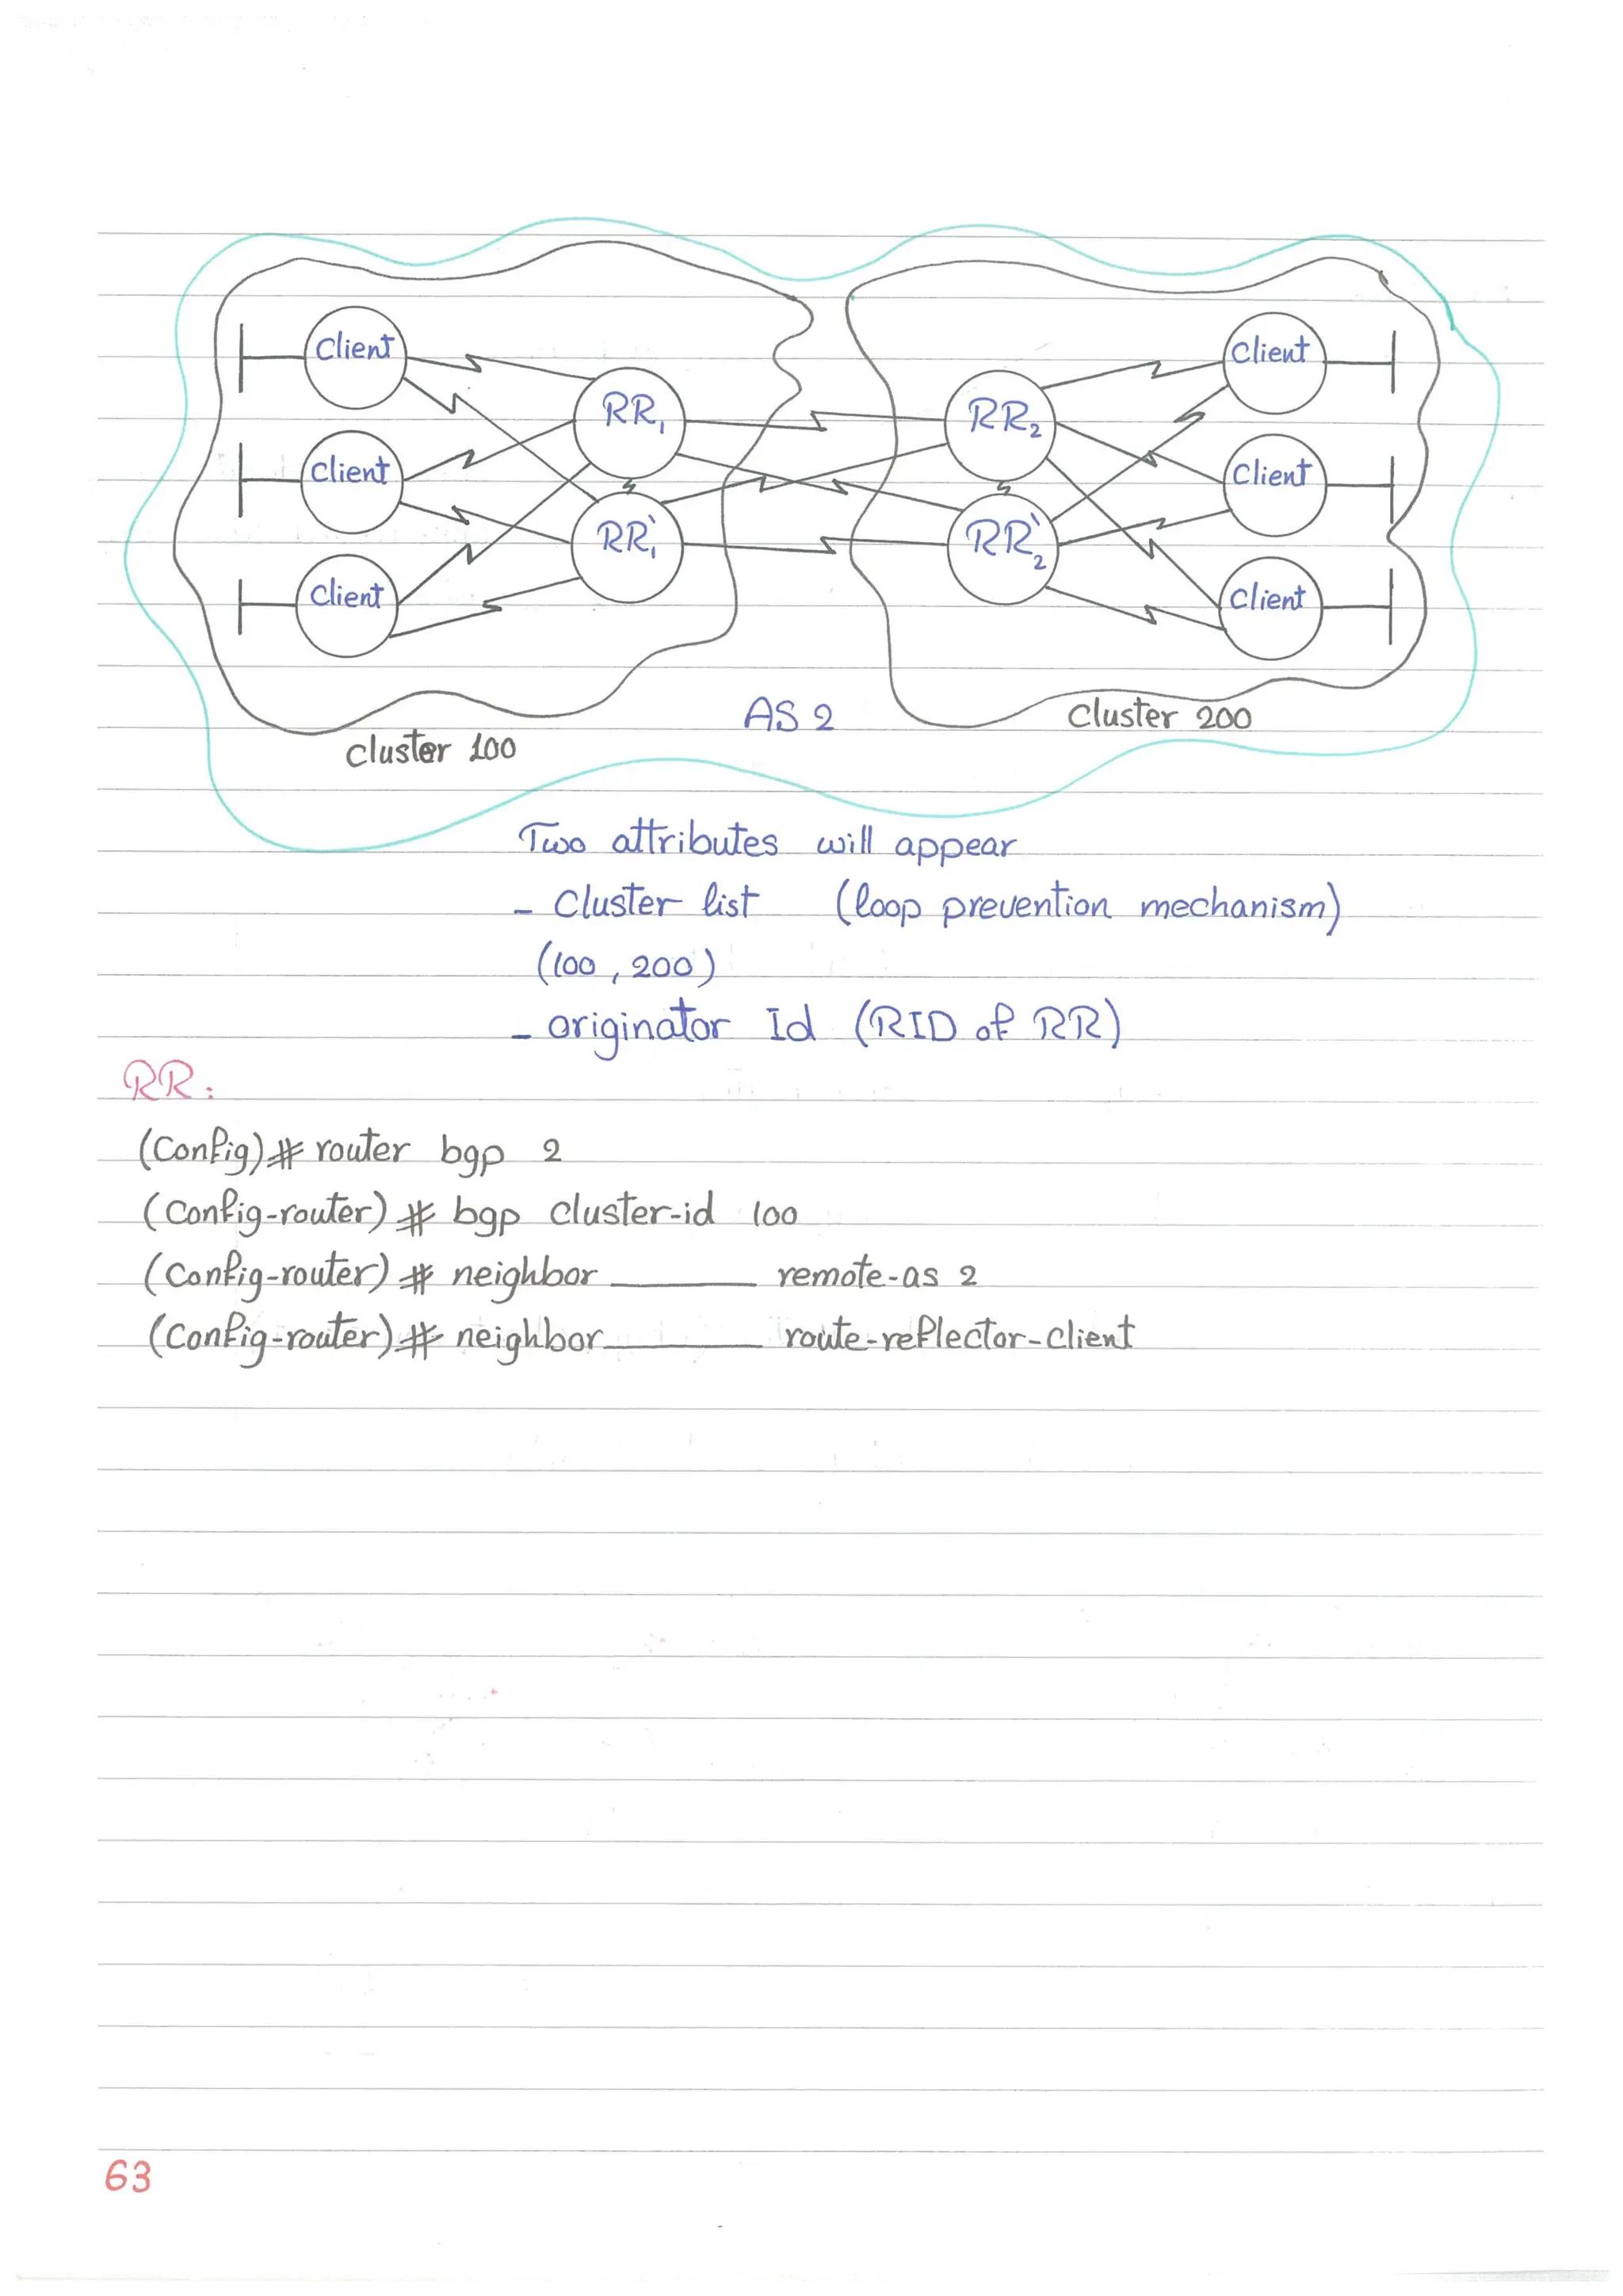 Client
Client
RR1
RR2
Client
Client
RR1`
RR2`
Client
Client
AS 2
Cluster 200
Cluster 100
Two attributes will appear
- Cluster list (loop prevention mechanism)
(100, 200)
- originator Id (RID of RR)
RR:
(Config)# router bgp 2
(Config-router)# bgp cluster-id 100
(Config-router)# neighbor ______ remote-as 2
(Config-router)# neighbor ______ route-reflector-client
63